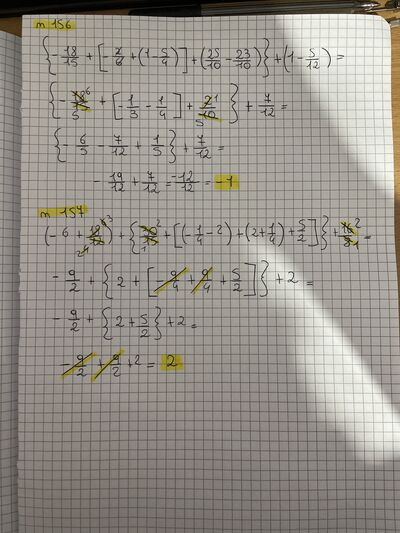 n 156
{-18/15 + [-2/6 + (1-5/4)] + (25/10 - 23/10)} + (1-5/12) =
{-18/15 6/5 + [-1/3 - 1/4] + 2/10 1/5} + 7/12 =
{-6/5 - 7/12 + 1/5} + 7/12 =
- 19/12 + 7/12 = -12/12 = -1
n 157
(-6 + 18/12 3/2) + {30/15 2/1 + [(-1/4 - 2) + (2+1/4) + 5/2]} + 16/8 2/1 =
- 9/2 + {2 + [-9/4 + 9/4 + 5/2]} + 2 =
- 9/2 + {2 + 5/2} + 2 =
- 9/2 + 9/2 + 2 = 2